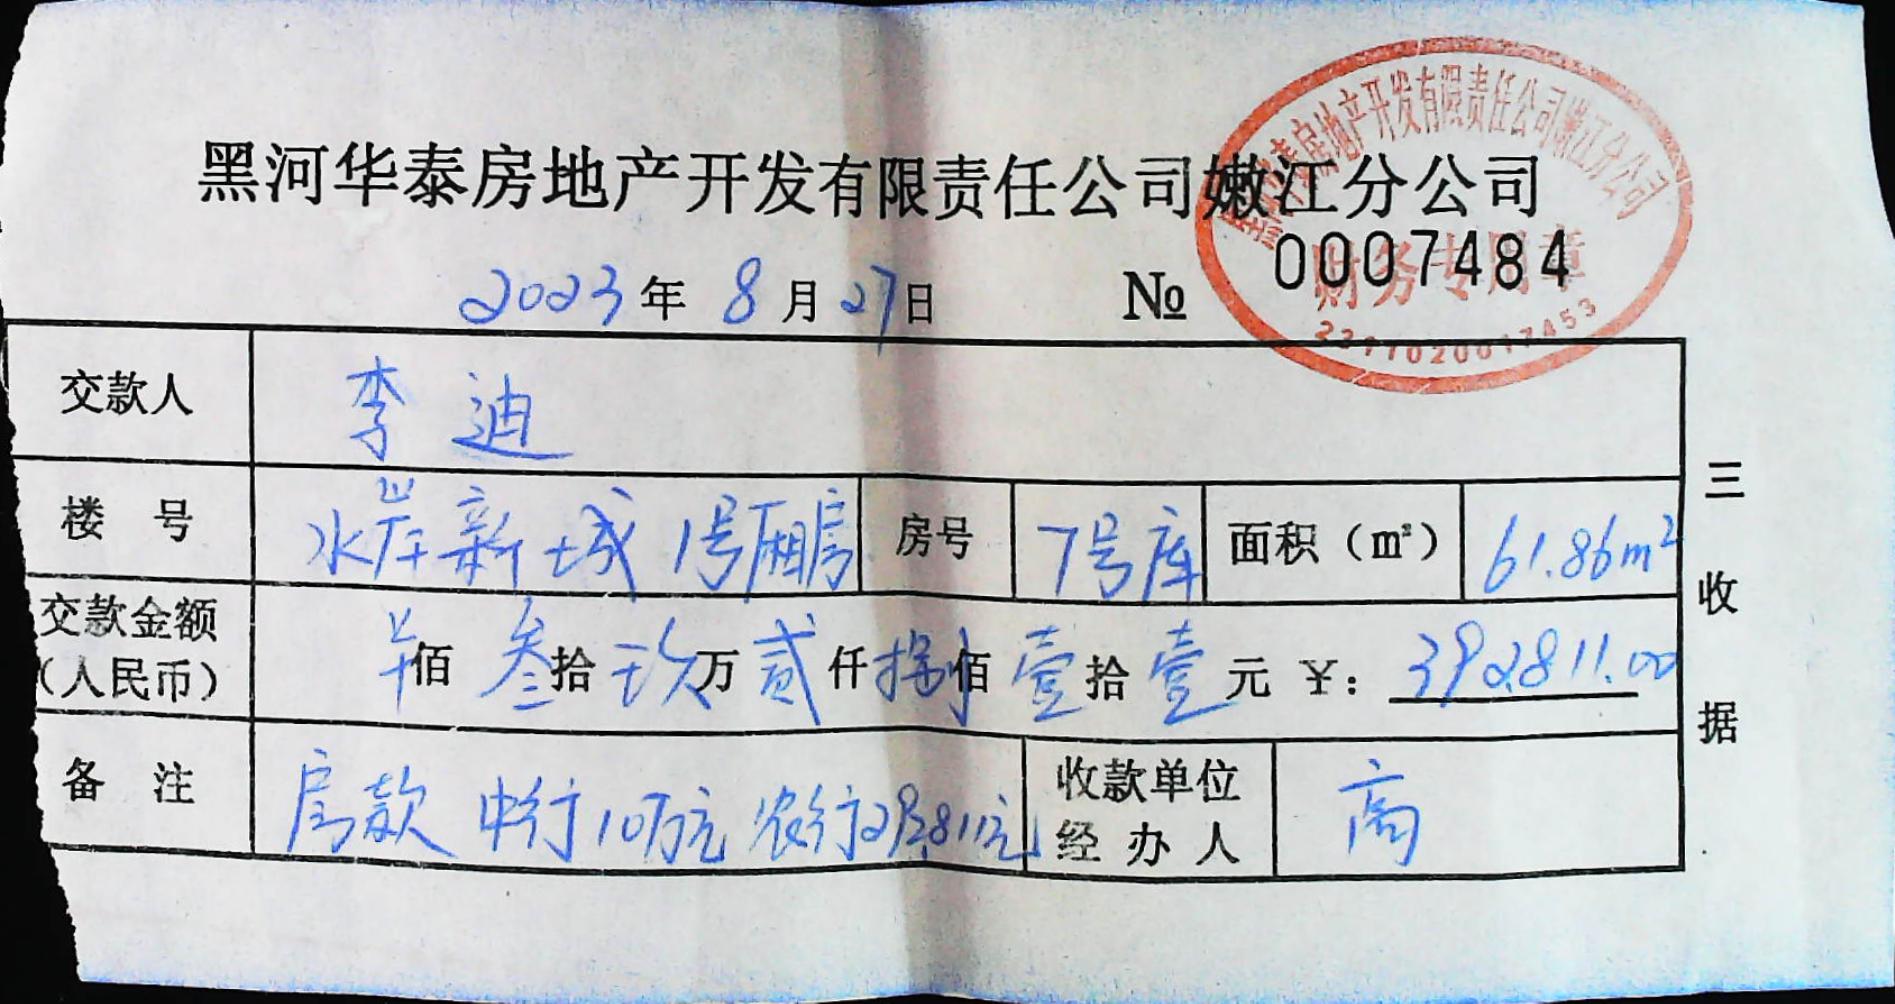 黑河华泰房地产开发有限责任公司嫩江分公司
房地产开发有限责任公司嫩江分公司
财务专用章
2023年 8月27日 № 0007484
交款人 李迪
楼号 水岸新城 1号厢房 房号 7号库 面积（m²） 61.86m²
交款金额（人民币） ¥佰叁拾玖万贰仟捌佰壹拾壹元 ¥：392811.00
备注 房款 中行10万元 农行292811元 收款单位经办人 高
三收据